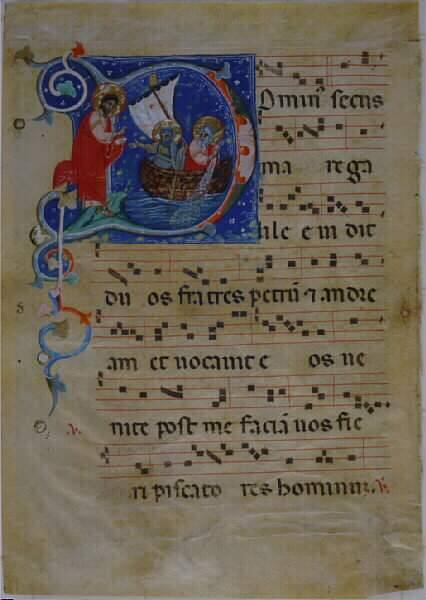 Dominꝰ secus
ma rega
lile e in dit
du os fratres petrū ⁊ andre
am et uocauit e os ue
nite post me faciā uos fie
ri piscato res hominum. V.